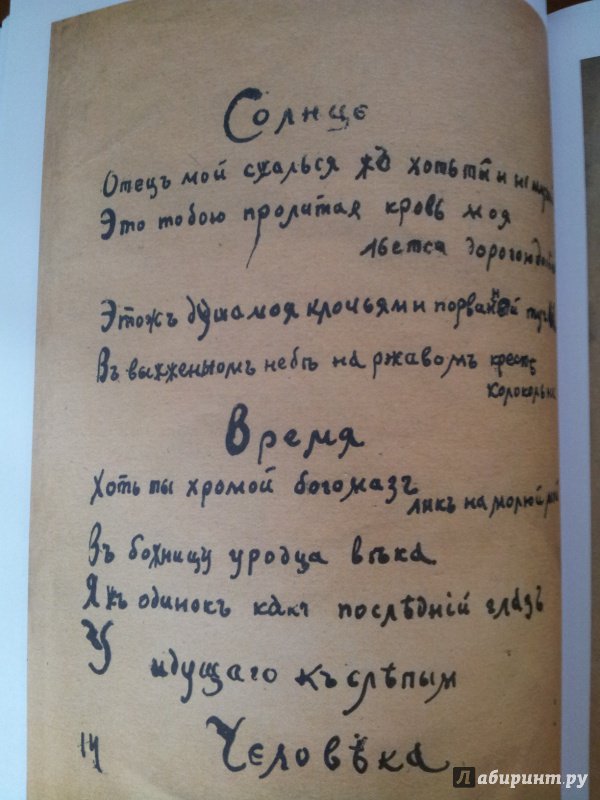 Солнце
Отецъ мой сжалься хоть ты и не
Это тобою пролитая кровь моя
льется
Этожъ душа моя клочьями порванной
Въ выжженномъ небѣ на ржавомъ крестѣ
колокольни
Время
Хоть ты хромой богомазъ
ликъ намалюй мой
Въ божницу уродца вѣка
Я одинокъ какъ послѣдній глазъ
У
идущаго къ слѣпым
Человѣка
14
Лабиринт.ру